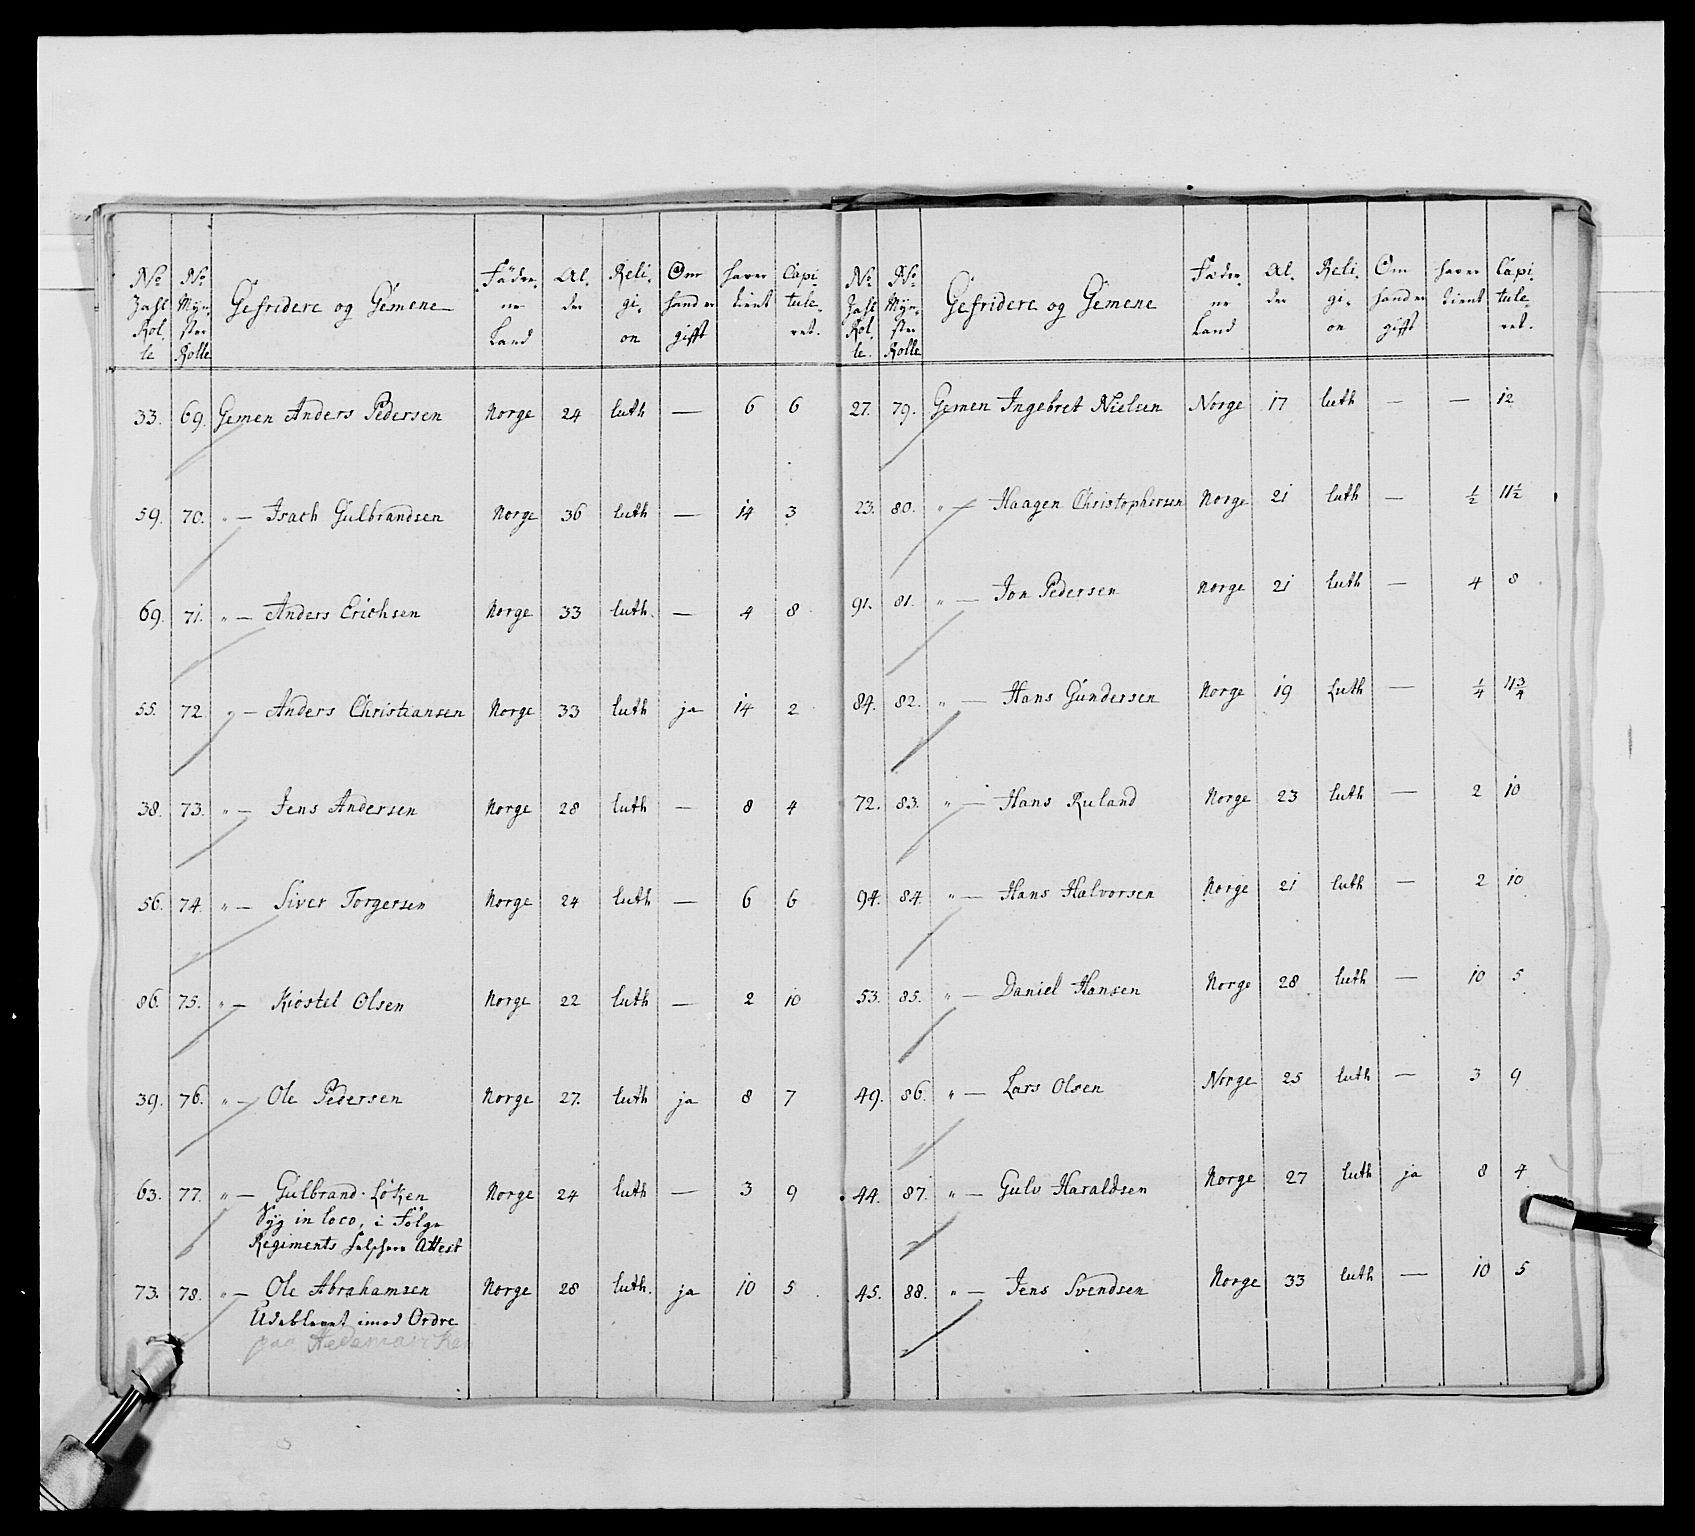 No Zahl Rolle | No Mynster Rolle | Gefridere og Gemene | Fæderne Land | Alder | Religion | Om hand er gifft | haver tient | Capituleret.
33. 69. Gemen Anders Pedersen Norge 24 luth — 6 6
59. 70. " — Isach Gulbrandsen Norge 36 luth — 14 3
69. 71. " — Anders Erichsen Norge 33 luth. — 4 8
55. 72. " — Anders Christiansen Norge 33 luth ja 14 2
38. 73. " — Jens Andersen Norge 28 luth — 8 4
56. 74. " — Siver Torgersen Norge 24 luth — 6 6
86. 75. " — Kiostel Olsen Norge 22 luth — 2 10
39. 76. " — Ole Pedersen Norge 27. luth ja 8 7
63. 77. " — Gulbrand Løken Norge 24 luth — 3 9
Syg in loco, i Følge
Regiments Attest
73. 78. " — Ole Abrahamsen Norge 28 luth. ja 10 5
Udeblevet imod Ordre
paa Hedemarken
No Zahl Rolle | No Mynster Rolle | Gefridere og Gemene | Fæderne Land | Alder | Religion | Om hand er gifft | haver tient | Capituleret.
27. 79. Gemen Ingebret Nielsen Norge 17 luth — — 12
23. 80. " — Haagen Christophersen Norge 21 luth — ½ 11½
91. 81. " — Jon Pedersen Norge 21 luth — 4 8
84. 82. " — Hans Gundersen Norge 19 Luth — ¼ 11¾
72. 83. " — Hans Ruland Norge 23 luth — 2 10
94. 84. " — Hans Halvorsen Norge 21 luth — 2 10
53. 85. " — Daniel Hansen Norge 28 luth — 10 5
49. 86. " — Lars Olsen Norge 25 luth — 3 9
44. 87. " — Gulv Haraldsen Norge 27 luth ja 8 4
45. 88. " — Jens Svendsen Norge 33 luth — 10 5